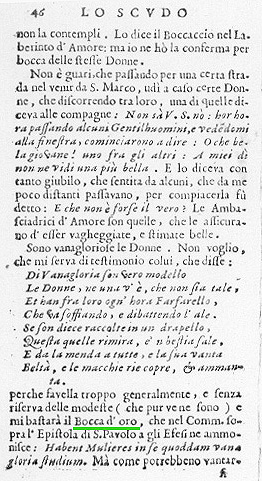 46 LO SCVDO
non la contempli. Lo dice il Boccaccio nel La-
berinto d'Amore: ma io ne hò la conferma per
bocca delle stesse Donne.
Non è guari, che passando per una certa stra-
da nel venir da S. Marco, udì a caso certe Don-
ne, che discorrendo tra loro, una di quelle di-
ceva alle compagne: Non sà V. S. nò: hor ho-
ra passando alcuni Gentilhuomini, e vedēdomi
alla finestra, cominciarono a dire: O che be-
la giovane! uno fra gli altri: A miei dì
non ne vidi una più bella. E lo diceva con
tanto giubilo, che sentita da alcuni, che da me
poco distanti passavano, per compiacerla fù
detto: E che non è forse il vero? Le Amba-
sciadrici d'Amore son quelle, che le assicura-
no d'esser vagheggiate, e stimate belle.
Sono vanagloriose le Donne. Non voglio,
che mi serva di testimonio colui, che disse:
Di Vanagloria son vero modello
Le Donne, ne una v'è, che non sia tale,
Et han fra loro ogn'hora Farfarello,
Che và soffiando, e dibattendo l'ale.
Se son diece raccolte in un drapello,
Questa quelle rimira, e n'hestia sale,
E da la menda a tutte, e la sua vanta
Beltà, e le macchie ricopre, & amman-
ta.
perche favella troppo generalmente, e senza
riserva delle modeste (che pur ve ne sono) e
mi bastarà il Bocca d'oro, che nel Comm. so-
pra l'Epistola di S. Pavolo a gli Efesi ne ammo-
nisce: Habent Mulieres in se quoddam vana
gloria studium. Mà come potrebbeno vantar-